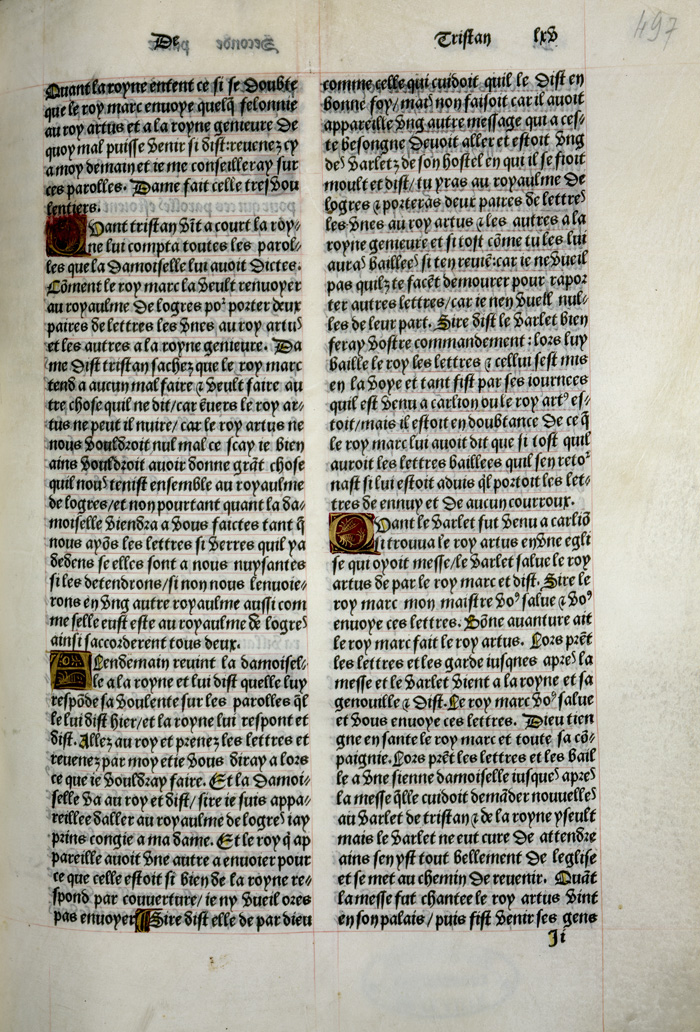 De
Tristan lxv
497
Quant la royne entent ce si se doubte
que le roy marc enuoye quelq̄ felonnie
au roy artus et a la royne genieure de
quoy mal puisse venir si dist: reuenez cy
a moy demain et ie me conseilleray sur
ces parolles. Dame fait celle tresvou
lentiers.
Quant tristan vīt a court la roy-
ne lui compta toutes les parol-
les que la damoiselle lui auoit dictes.
Cōment le roy marc la veult renuoyer
au royaulme de logres poꝰ porter deux
paires de lettres les vnes au roy artus
et les autres a la royne genieure. Da
me dist tristan sachez que le roy marc
tend a aucun mal faire ⁊ veult faire au
tre chose quil ne dit/car ēuers le roy ar-
tus ne peut il nuire/ car le roy artus ne
nous vouldroit nul mal ce scay ie bien
ains vouldroit auoir donne grāt chose
quil nous tenist ensemble au royaulme
de logres/et non pourtant quant la da-
moiselle viendra a vous faictes tant q̄
nous ayōs les lettres si verres quil y a
dedens se elles sont a nous nuysantes
si les detendrons/si non nous lenuoie-
rons en vng autre royaulme aussi com
me selle eust este au royaulme de logres
ainsi saccorderent tous deux.
A Lendemain reuint la damoisel-
le a la royne et lui dist quelle luy
respōde sa voulente sur les parolles q̄l
le lui dist hier/et la royne lui respont et
dist. Allez au roy et prenez les lettres et
reuenez par moy et ie vous diray a lors
ce que ie vouldray faire. Et la damoi-
selle va au roy et dist/ sire ie suis appa-
reillee daller au royaulme de logres iay
prins congie a ma dame. Et le roy q̄ ap
pareille auoit vne autre a enuoier pour
ce que celle estoit si bien de la royne re-
spond par couuerture/ ie ny vueil ores
pas enuoyer Sire dist elle de par dieu
comme celle qui cuidoit quil le dist en
bonne foy/mais non faisoit car il auoit
appareille vng autre message qui a ces-
te besongne deuoit aller et estoit vng
des varletz de son hostel en qui il se fioit
moult et dist/ tu yras au royaulme de
logres ⁊ porteras deux paires de lettres
les vnes au roy artus ⁊ les autres a la
royne genieure et si tost cōme tu les lui
auras baillees si ten reuiē: car ie ne vueil
pas quilz te facēt demourer pour rapor
ter autres lettres/car ie nen vueil nul-
les de leur part. Sire dist le varlet bien
feray vostre commandement: lors luy
baille le roy les lettres ⁊ cellui sest mis
en la voye et tant fist par ses iournees
quil est venu a carlion ou le roy artꝰ es-
toit/mais il estoit en doubtance de ce q̄
le roy marc lui auoit dit que si tost quil
auroit les lettres baillees quil sen retor
nast si lui estoit aduis q̄l portoit les let-
tres de ennuy et de aucun courroux.
Quant le varlet fut venu a carliō
si trouua le roy artus en vne egli
se qui oyoit messe/le varlet salue le roy
artus de par le roy marc et dist. Sire le
roy marc mon maistre voꝰ salue ⁊ voꝰ
enuoye ces lettres. Bōne auanture ait
le roy marc fait le roy artus. Lors prēt
les lettres et les garde iusques apres la
messe et le varlet vient a la royne et sa
genouille ⁊ dist. Le roy marc voꝰ salue
et vous enuoye ces lettres. Dieu tien
gne en sante le roy marc et toute sa cō-
paignie. Lors prēt les lettres et les bail
le a vne sienne damoiselle iusques apres
la messe q̄lle cuidoit demāder nouuelles
au varlet de tristan ⁊ de la royne yseult
mais le varlet ne eut cure de attendre
ains sen yst tout bellement de leglise
et se met au chemin de reuenir. Quāt
la messe fut chantee le roy artus vint
en son palais/ puis fist venir ses gens
Ii